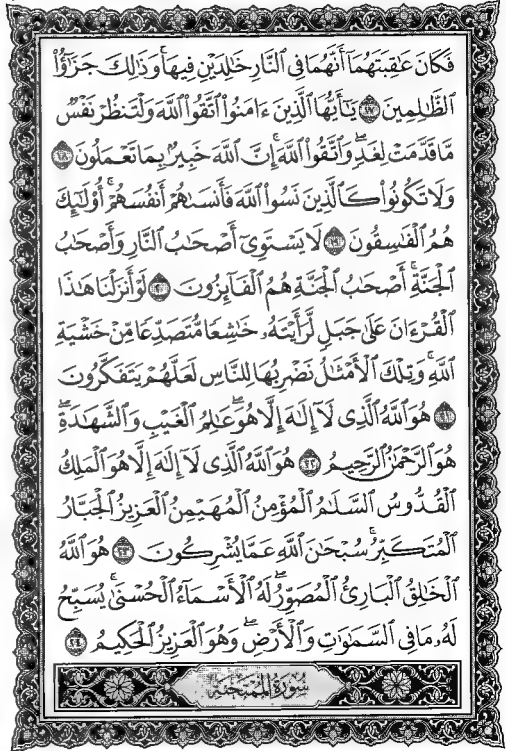 فَكَانَ عَٰقِبَتَهُمَآ أَنَّهُمَا فِى ٱلنَّارِ خَٰلِدَيْنِ فِيهَا ۚ وَذَٰلِكَ جَزَٰٓؤُا۟
ٱلظَّٰلِمِينَ ١٧ يَٰٓأَيُّهَا ٱلَّذِينَ ءَامَنُوا۟ ٱتَّقُوا۟ ٱللَّهَ وَلْتَنظُرْ نَفْسٌ
مَّا قَدَّمَتْ لِغَدٍ ۖ وَٱتَّقُوا۟ ٱللَّهَ ۚ إِنَّ ٱللَّهَ خَبِيرٌۢ بِمَا تَعْمَلُونَ ١٨
وَلَا تَكُونُوا۟ كَٱلَّذِينَ نَسُوا۟ ٱللَّهَ فَأَنسَىٰهُمْ أَنفُسَهُمْ ۚ أُو۟لَٰٓئِكَ
هُمُ ٱلْفَٰسِقُونَ ١٩ لَا يَسْتَوِىٓ أَصْحَٰبُ ٱلنَّارِ وَأَصْحَٰبُ
ٱلْجَنَّةِ ۚ أَصْحَٰبُ ٱلْجَنَّةِ هُمُ ٱلْفَآئِزُونَ ٢٠ لَوْ أَنزَلْنَا هَٰذَا
ٱلْقُرْءَانَ عَلَىٰ جَبَلٍ لَّرَأَيْتَهُۥ خَٰشِعًا مُّتَصَدِّعًا مِّنْ خَشْيَةِ
ٱللَّهِ ۚ وَتِلْكَ ٱلْأَمْثَٰلُ نَضْرِبُهَا لِلنَّاسِ لَعَلَّهُمْ يَتَفَكَّرُونَ
٢١ هُوَ ٱللَّهُ ٱلَّذِى لَآ إِلَٰهَ إِلَّا هُوَ ۖ عَٰلِمُ ٱلْغَيْبِ وَٱلشَّهَٰدَةِ ۖ
هُوَ ٱلرَّحْمَٰنُ ٱلرَّحِيمُ ٢٢ هُوَ ٱللَّهُ ٱلَّذِى لَآ إِلَٰهَ إِلَّا هُوَ ٱلْمَلِكُ
ٱلْقُدُّوسُ ٱلسَّلَٰمُ ٱلْمُؤْمِنُ ٱلْمُهَيْمِنُ ٱلْعَزِيزُ ٱلْجَبَّارُ
ٱلْمُتَكَبِّرُ ۚ سُبْحَٰنَ ٱللَّهِ عَمَّا يُشْرِكُونَ ٢٣ هُوَ ٱللَّهُ
ٱلْخَٰلِقُ ٱلْبَارِئُ ٱلْمُصَوِّرُ ۖ لَهُ ٱلْأَسْمَآءُ ٱلْحُسْنَىٰ ۚ يُسَبِّحُ
لَهُۥ مَا فِى ٱلسَّمَٰوَٰتِ وَٱلْأَرْضِ ۖ وَهُوَ ٱلْعَزِيزُ ٱلْحَكِيمُ ٢٤
سُورَةُ ٱلْمُمْتَحِنَةِ